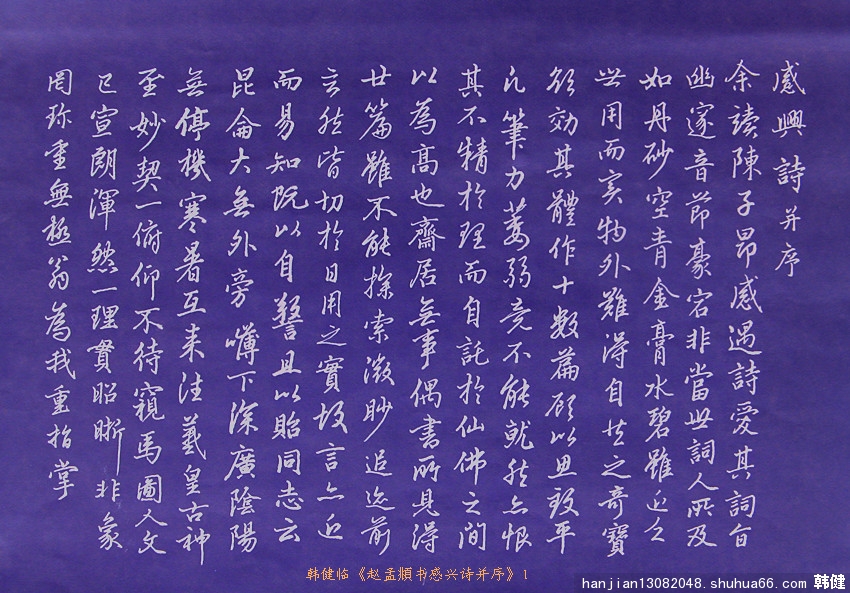 感興詩并序
余讀陳子昂感遇詩愛其詞旨
幽邃音節豪宕非當世詞人所及
如丹砂空青金膏水碧雖近乏
世用而实物外難得自然之奇寶
欲効其體作十數篇顧以思致平
凡筆力萎弱竟不能就然亦恨
其不精於理而自託於仙佛之間
以為高也齋居無事偶書所見得
廿篇雖不能探索微眇追迹前
言然皆切於日用之實故言亦近
而易知既以自警且以貽同志云
昆侖大無外旁礴下深廣陰陽
無停機寒暑互来往羲皇古神
聖妙契一俯仰不待窺馬圖人文
已宣朗渾然一理貫昭晰非象
罔珍重無極翁為我重指掌
韩健临《赵孟頫书感兴诗并序》1
hanjian13082048.shuhua66.com 韩健